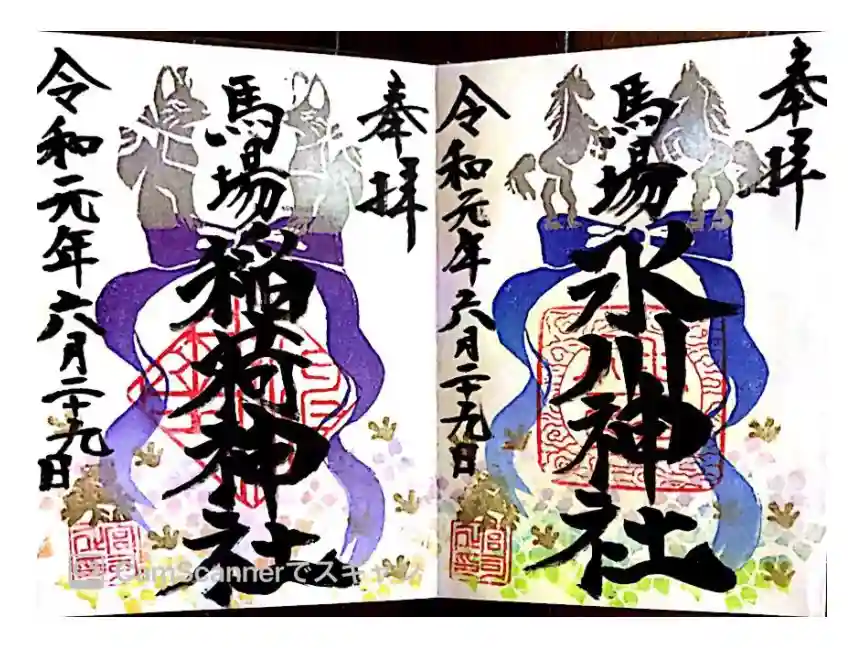 奉拝
馬場氷川神社
令和元年六月二十九日
奉拝
馬場稲荷神社
令和元年六月二十九日
CamScannerでスキャン